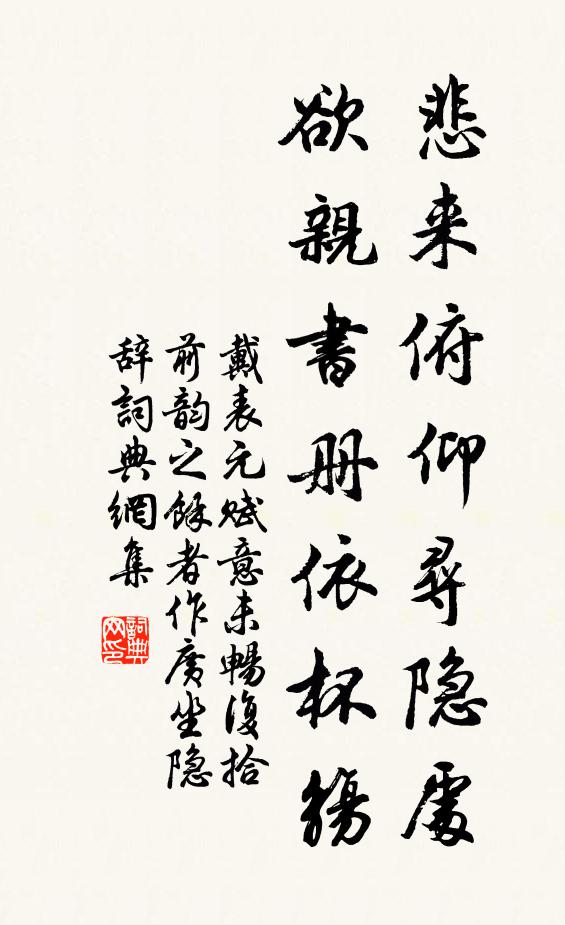 悲来俯仰尋隐處
欲親書册依杯觴
戴表元赋意未暢復拾
前韵之餘者作廣坐隐
辞詞典網集
詞典网印